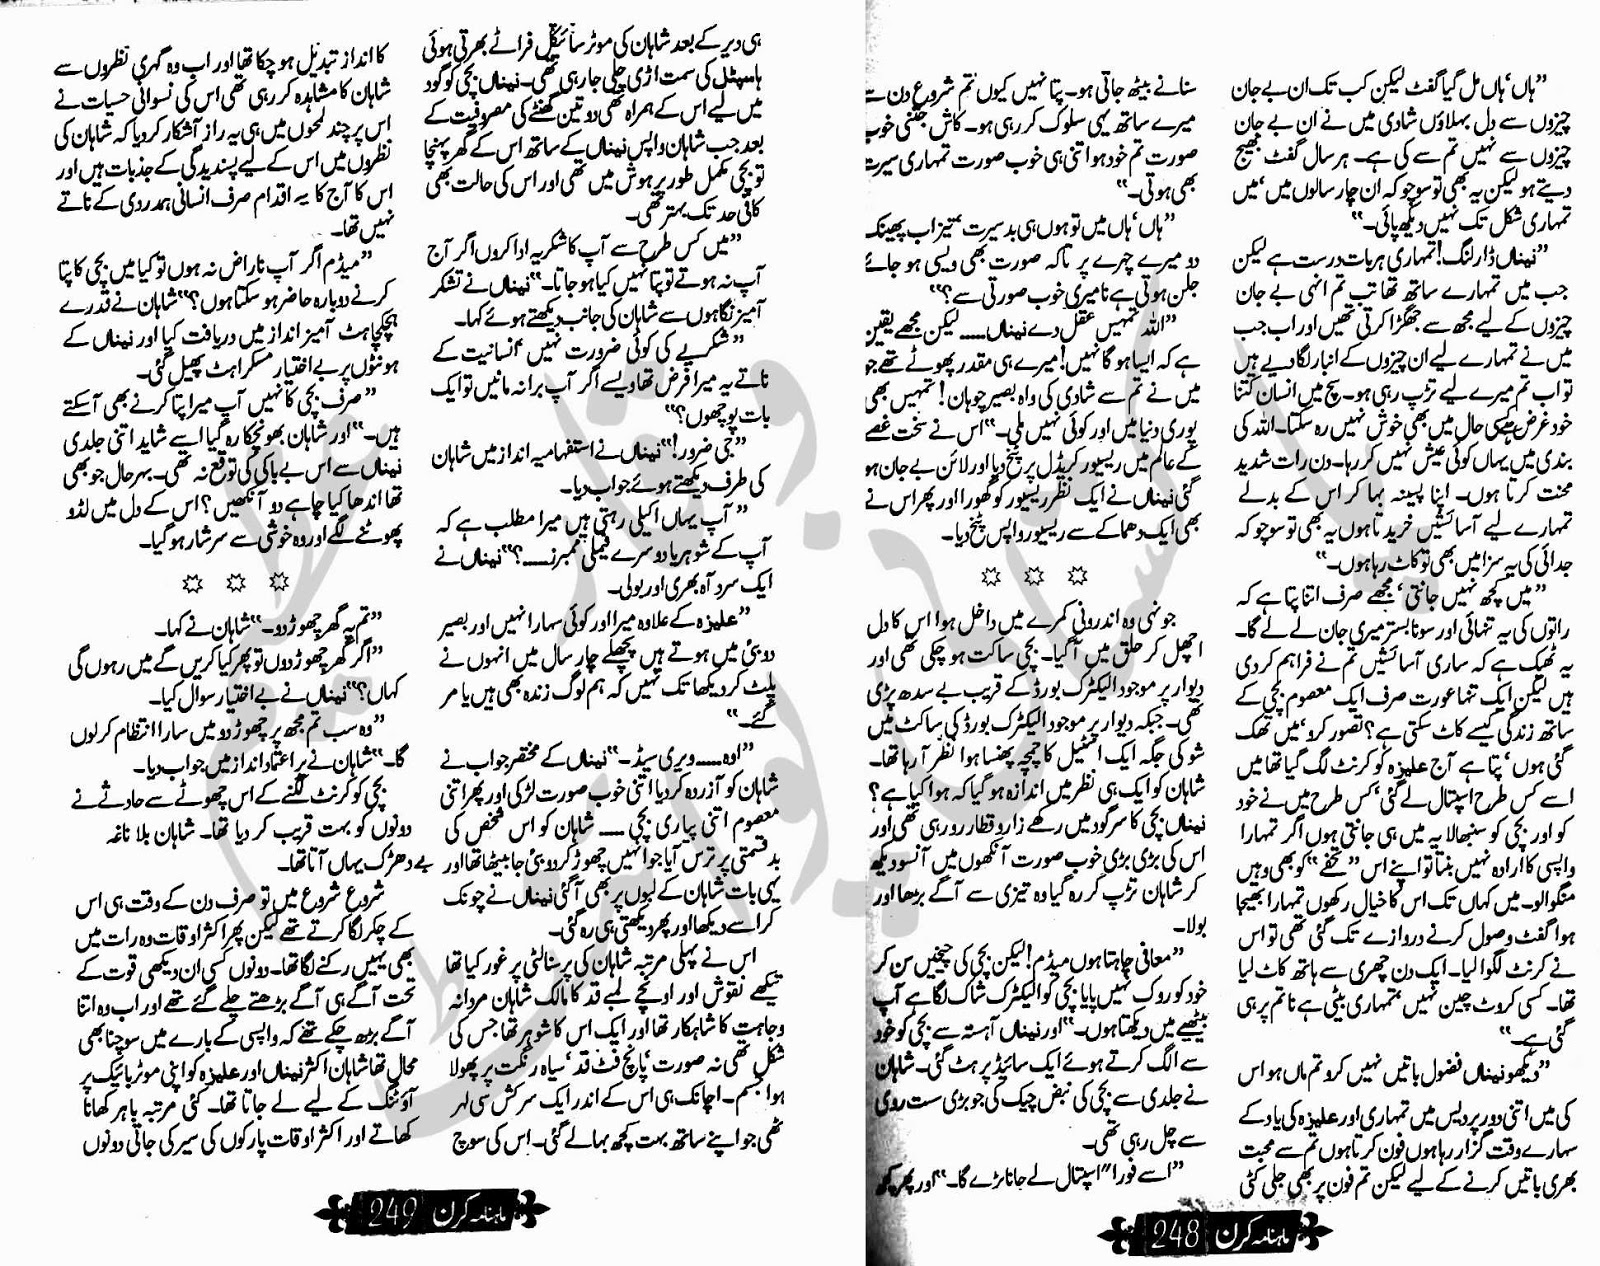 ”ہاں‘ ہاں مل گیا گفٹ لیکن کب تک ان بے جان
چیزوں سے دل بہلاؤں شادی میں نے ان بے جان
چیزوں سے نہیں تم سے کی ہے۔ ہر سال گفٹ بھیج
دیتے ہو لیکن یہ بھی تو سوچو کہ ان چار سالوں میں‘ میں
تمہاری شکل تک نہیں دیکھ پائی۔“
”نیناں ڈارلنگ! تمہاری ہر بات درست ہے لیکن
جب میں تمہارے ساتھ تھا تب تم انہی بے جان
چیزوں کے لیے مجھ سے جھگڑا کرتی تھیں اور اب جب
میں نے تمہارے لیے ان چیزوں کے انبار لگا دیے ہیں
تو اب تم میرے لیے تڑپ رہی ہو۔ سچ میں انسان کتنا
خود غرض ہے کسی حال میں بھی خوش نہیں رہ سکتا۔ اللہ کی
بندی میں یہاں کوئی عیش نہیں کر رہا۔ دن رات شدید
محنت کرتا ہوں۔ اپنا پسینہ بہا کر اس کے بدلے
تمہارے لیے آسائشیں خریدتا ہوں یہ بھی تو سوچو کہ
جدائی کی یہ سزا میں بھی تو کاٹ رہا ہوں۔“
”میں کچھ نہیں جانتی‘ مجھے صرف اتنا پتا ہے کہ
راتوں کی یہ تنہائی اور سونا بستر میری جان لے لے گا۔
یہ ٹھیک ہے کہ ساری آسائشیں تم نے فراہم کر دی
ہیں لیکن ایک تنہا عورت صرف ایک معصوم بچی کے
ساتھ زندگی کیسے کاٹ سکتی ہے؟ تصور کرو‘ میں تھک
گئی ہوں‘ پتا ہے آج علیزہ کو کرنٹ لگ گیا تھا میں
اسے کس طرح اسپتال لے گئی‘ کس طرح میں نے خود
کو اور بچی کو سنبھالا یہ میں ہی جانتی ہوں اگر تمہارا
واپسی کا ارادہ نہیں بنتا تو اپنے اس ”تحفے“ کو بھی وہیں
منگوا لو۔ میں کہاں تک اس کا خیال رکھوں تمہارا بھیجا
ہوا گفٹ وصول کرنے دروازے تک گئی تھی تو اس
نے کرنٹ لگوا لیا۔ ایک دن چھری سے ہاتھ کاٹ لیا
تھا۔ کسی کروٹ چین نہیں‘ تمہاری بیٹی ہے نا تم پر ہی
گئی ہے۔“
”دیکھو نیناں فضول باتیں نہیں کرو تم ماں ہو اس
کی میں اتنی دور پردیس میں تمہاری اور علیزہ کی یاد کے
سہارے وقت گزار رہا ہوں فون کرتا ہوں تم سے محبت
بھری باتیں کرنے کے لیے لیکن تم فون پر بھی جلی کٹی
سنانے بیٹھ جاتی ہو۔ پتا نہیں کیوں تم شروع دن سے
میرے ساتھ یہی سلوک کر رہی ہو۔ کاش جتنی خوب
صورت تم خود ہو اتنی ہی خوب صورت تمہاری سیرت
بھی ہوتی۔“
”ہاں‘ ہاں میں تو ہوں ہی بد سیرت تیزاب پھینک
دو میرے چہرے پر تاکہ صورت بھی ویسی ہو جائے
جلن ہوتی ہے نا میری خوب صورتی سے؟“
”اللہ تمہیں عقل دے نیناں۔۔۔۔ لیکن مجھے یقین
ہے کہ ایسا ہو گا نہیں! میرے ہی مقدر پھوٹے تھے جو
میں نے تم سے شادی کی واہ بصیر چوہان! تمہیں بھی
پوری دنیا میں اور کوئی نہیں ملی۔“ اس نے سخت غصے
کے عالم میں ریسیور کریڈل پر پٹخ دیا اور لائن بے جان ہو
گئی نیناں نے ایک نظر ریسیور کو گھورا اور پھر اس نے
بھی ایک دھماکے سے ریسیور واپس پٹخ دیا۔
۞ ۞ ۞
جونہی وہ اندرونی کمرے میں داخل ہوا اس کا دل
اچھل کر حلق میں آ گیا۔ بچی ساکت ہو چکی تھی اور
دیوار پر موجود الیکٹرک بورڈ کے قریب بے سدھ پڑی
تھی۔ جبکہ دیوار پر موجود الیکٹرک بورڈ کی ساکٹ میں
شو کی جگہ ایک اسٹیل کا چمچہ پھنسا ہوا نظر آ رہا تھا۔
شاہان کو ایک ہی نظر میں اندازہ ہو گیا کہ ہوا کیا ہے؟
نیناں بچی کا سر گود میں رکھے زار و قطار رو رہی تھی اور
اس کی بڑی بڑی خوب صورت آنکھوں میں آنسو دیکھ
کر شاہان تڑپ کر رہ گیا وہ تیزی سے آگے بڑھا اور
بولا۔
”معافی چاہتا ہوں میڈم! لیکن بچی کی چیخیں سن کر
خود کو روک نہیں پایا بچی کو الیکٹرک شاک لگا ہے آپ
بیٹھیے میں دیکھتا ہوں۔“ اور نیناں آہستہ سے بچی کو خود
سے الگ کرتے ہوئے ایک سائیڈ پر ہٹ گئی۔ شاہان
نے جلدی سے بچی کی نبض چیک کی جو بڑی سست روی
سے چل رہی تھی۔
”اسے فورا“ اسپتال لے جانا پڑے گا۔“ اور پھر کچھ
ماہنامہ کرن 248
ہی دیر کے بعد شاہان کی موٹر سائیکل فراٹے بھرتی ہوئی
ہاسپٹل کی سمت اڑی چلی جا رہی تھی۔ نیناں بچی کو گود
میں لیے اس کے ہمراہ تھی دو تین گھنٹے کی مصروفیت کے
بعد جب شاہان واپس نیناں کے ساتھ اس کے گھر پہنچا
تو بچی مکمل طور پر ہوش میں تھی اور اس کی حالت بھی
کافی حد تک بہتر تھی۔
”میں کس طرح سے آپ کا شکریہ ادا کروں اگر آج
آپ نہ ہوتے تو پتا نہیں کیا ہو جاتا۔“ نیناں نے تشکر
آمیز نگاہوں سے شاہان کی جانب دیکھتے ہوئے کہا۔
”شکریے کی کوئی ضرورت نہیں انسانیت کے
ناتے یہ میرا فرض تھا ویسے اگر آپ برا نہ مانیں تو ایک
بات پوچھوں؟“
”جی ضرور!“ نیناں نے استفہامیہ انداز میں شاہان
کی طرف دیکھتے ہوئے جواب دیا۔
”آپ یہاں اکیلی رہتی ہیں میرا مطلب ہے کہ
آپ کے شوہر یا دوسرے فیملی ممبرز۔۔۔۔؟“ نیناں نے
ایک سرد آہ بھری اور بولی۔
”علیزہ کے علاوہ میرا اور کوئی سہارا نہیں اور بصیر
دوبئی میں ہوتے ہیں پچھلے چار سال میں انہوں نے
پلٹ کر دیکھا تک نہیں کہ ہم لوگ زندہ بھی ہیں یا مر
گئے۔“
”اوہ۔۔۔۔ ویری سیڈ۔“ نیناں کے مختصر جواب نے
شاہان کو آزردہ کر دیا اتنی خوب صورت لڑکی اور پھر اتنی
معصوم اتنی پیاری بچی۔۔۔۔ شاہان کو اس شخص کی
بد قسمتی پر ترس آیا جو انہیں چھوڑ کر دوبئی جا بیٹھا تھا اور
یہی بات شاہان کے لبوں پر بھی آ گئی نیناں نے چونک
کر اسے دیکھا اور پھر دیکھتی ہی رہ گئی۔
اس نے پہلی مرتبہ شاہان کی پرسنالٹی پر غور کیا تھا
تیکھے نقوش اور اونچے لمبے قد کا مالک شاہان مردانہ
وجاہت کا شاہکار تھا اور ایک اس کا شوہر تھا جس کی
شکل تھی نہ صورت‘ پانچ فٹ قد‘ سیاہ رنگت پر پھولا
ہوا جسم۔ اچانک ہی اس کے اندر ایک سرکش سی لہر
اٹھی جو اپنے ساتھ بہت کچھ بہا لے گئی۔ اس کی سوچ
کا انداز تبدیل ہو چکا تھا اور اب وہ گہری نظروں سے
شاہان کا مشاہدہ کر رہی تھی اس کی نسوانی حسیات نے
اس پر چند لمحوں میں ہی یہ راز آشکار کر دیا کہ شاہان کی
نظروں میں اس کے لیے پسندیدگی کے جذبات ہیں اور
اس کا آج کا یہ اقدام صرف انسانی ہمدردی کے ناتے
نہیں تھا۔
”میڈم اگر آپ ناراض نہ ہوں تو کیا میں بچی کا پتا
کرنے دوبارہ حاضر ہو سکتا ہوں؟“ شاہان نے قدرے
ہچکچاہٹ آمیز انداز میں دریافت کیا اور نیناں کے
ہونٹوں پر بے اختیار مسکراہٹ پھیل گئی۔
”صرف بچی کا نہیں آپ میرا پتا کرنے بھی آ سکتے
ہیں۔“ اور شاہان بھونچکا رہ گیا اسے شاید اتنی جلدی
نیناں سے اس بے باکی کی توقع نہ تھی۔ بہرحال جو بھی
تھا اندھا کیا چاہے دو آنکھیں؟ اس کے دل میں لڈو
پھوٹنے لگے اور وہ خوشی سے سرشار ہو گیا۔
۞ ۞ ۞
”تم یہ گھر چھوڑ دو۔“ شاہان نے کہا۔
”اگر گھر چھوڑ دوں تو پھر کیا کریں گے میں رہوں گی
کہاں؟“ نیناں نے بے اختیار سوال کیا۔
”وہ سب تم مجھ پر چھوڑ دو میں سارا انتظام کر لوں
گا۔“ شاہان نے پر اعتماد انداز میں جواب دیا۔
بچی کو کرنٹ لگنے کے اس چھوٹے سے حادثے نے
دونوں کو بہت قریب کر دیا تھا۔ شاہان بلا ناغہ
بے دھڑک یہاں آتا تھا۔
شروع شروع میں تو صرف دن کے وقت ہی اس
کے چکر لگا کرتے تھے لیکن پھر اکثر اوقات وہ رات میں
بھی یہیں رکنے لگا تھا۔ دونوں کسی ان دیکھی قوت کے
تحت آگے ہی آگے بڑھتے چلے گئے تھے اور اب وہ اتنا
آگے بڑھ چکے تھے کہ واپسی کے بارے میں سوچنا بھی
محال تھا شاہان اکثر نیناں اور علیزہ کو اپنی موٹر بائیک پر
آؤٹنگ کے لیے لے جاتا تھا۔ کئی مرتبہ باہر کھانا
کھاتے اور اکثر اوقات پارکوں کی سیر کی جاتی دونوں
ماہنامہ کرن 249